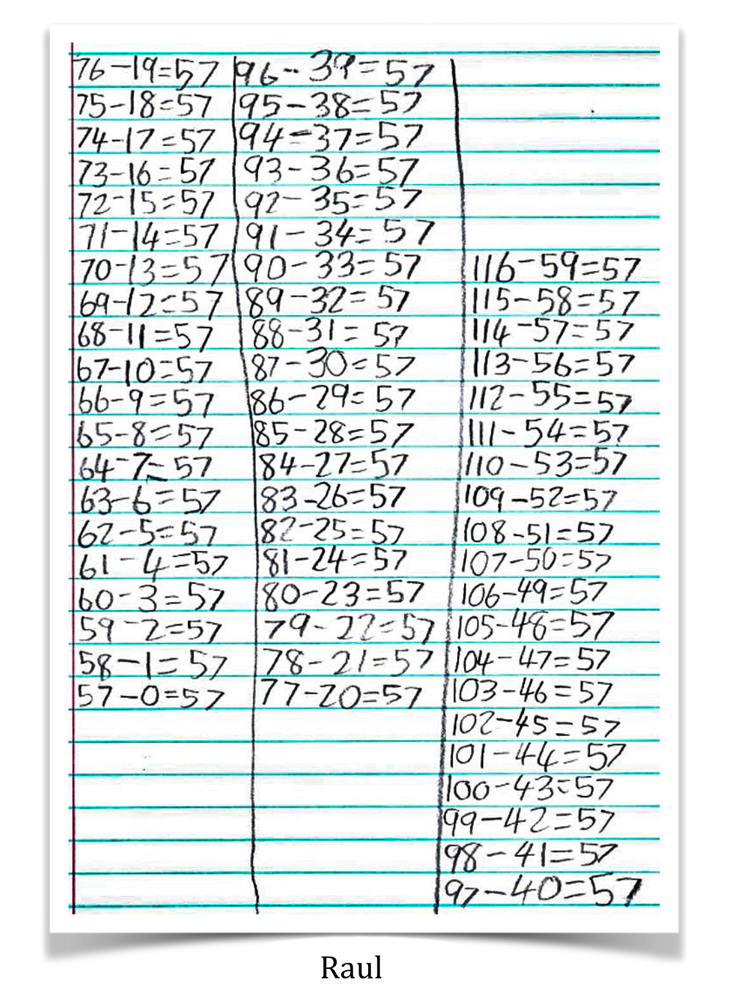 76-19=57
75-18=57
74-17=57
73-16=57
72-15=57
71-14=57
70-13=57
69-12=57
68-11=57
67-10=57
66-9=57
65-8=57
64-7=57
63-6=57
62-5=57
61-4=57
60-3=57
59-2=57
58-1=57
57-0=57
96-39=57
95-38=57
94-37=57
93-36=57
92-35=57
91-34=57
90-33=57
89-32=57
88-31=57
87-30=57
86-29=57
85-28=57
84-27=57
83-26=57
82-25=57
81-24=57
80-23=57
79-22=57
78-21=57
77-20=57
116-59=57
115-58=57
114-57=57
113-56=57
112-55=57
111-54=57
110-53=57
109-52=57
108-51=57
107-50=57
106-49=57
105-48=57
104-47=57
103-46=57
102-45=57
101-44=57
100-43=57
99-42=57
98-41=57
97-40=57
Raul